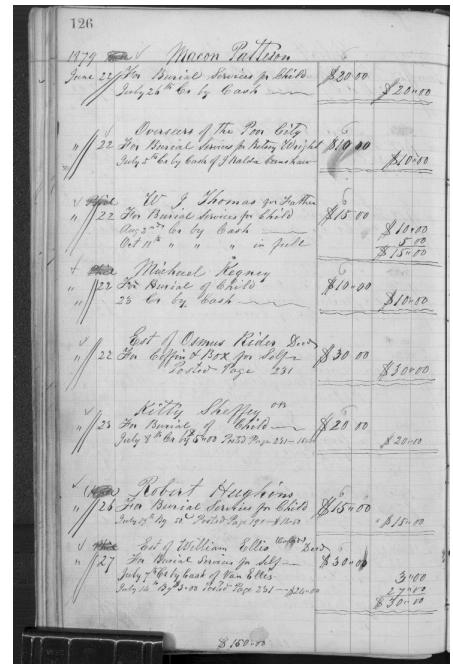 126
1879 Macon Patteson
June 22 For Burial Services for Child $20.00
July 26th Cr by Cash $20.00
Overseers of the Poor City
" 22 For Burial Services for Betsey Wright $10.00
July 5th Cr by Cash of J Crenshaw $10.00
W J Thomas for Father
" 22 For Burial Services for Child $15.00
Aug 2nd Cr by Cash $10.00
Oct 11th " " " in full 5.00
$15.00
Michael Kegney
" 22 For Burial of Child $10.00
" 23 Cr by Cash $10.00
Est of Osmus Rider Decd
" 22 For Coffin & Box for Self $30.00
Posted Page 231 $30.00
Kitty Sheffey
" 23 For Burial of Child $20.00
July 8th Cr by 5.00 Postd Page 231 $20.00
Robert Hughins
" 26 For Burial Services for Child $15.00
July Posted Page $15.00
Est of William Ellis Decd
" 27 For Burial Services for Self $30.00
July 7th Cr by Cash of Van Ellis 3.00
July 14th By 3.00 Posted Page 231 $24.00 27.00
$30.00
$150.00